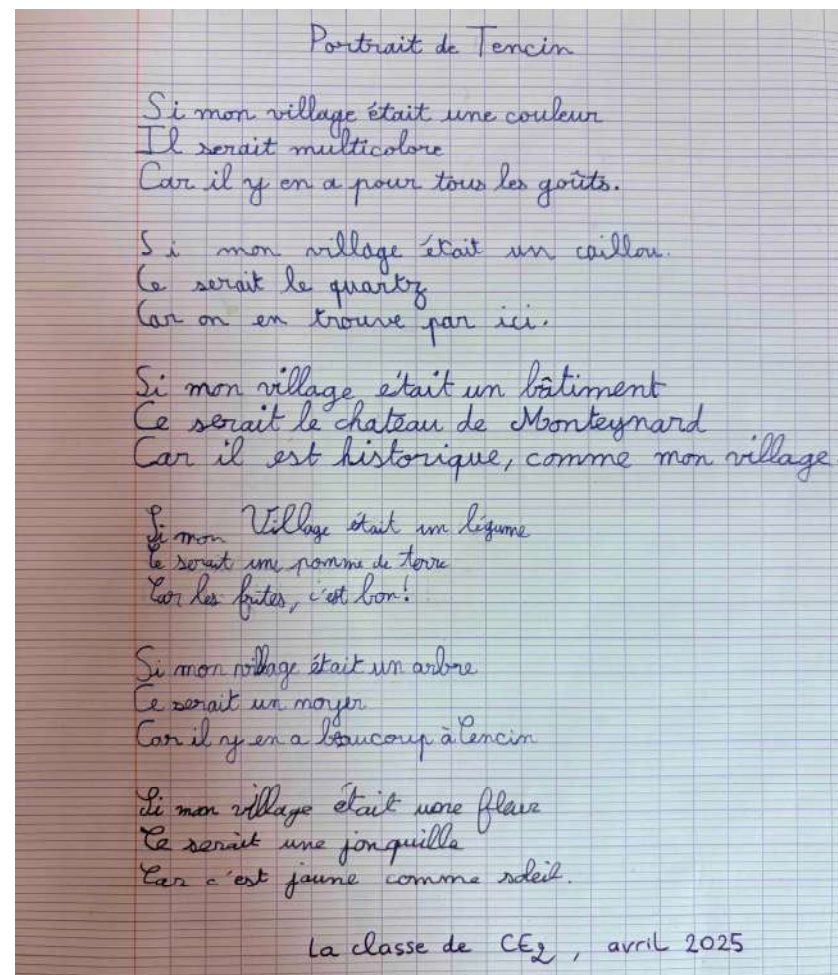 Portrait de Tencin
Si mon village était une couleur
Il serait multicolore
Car il y en a pour tous les goûts.
Si mon village était un caillou.
Ce serait le quartz
Car on en trouve par ici.
Si mon village était un bâtiment
Ce serait le chateau de Monteynard
Car il est historique, comme mon village
Si mon Village était un légume
Ce serait une pomme de terre
Car les frites, c'est bon!
Si mon village était un arbre
Ce serait un noyer
Car il y en a beaucoup à Tencin
Si mon village était une fleur
Ce serait une jonquille
Car c'est jaune comme soleil.
La classe de CE2, avril 2025